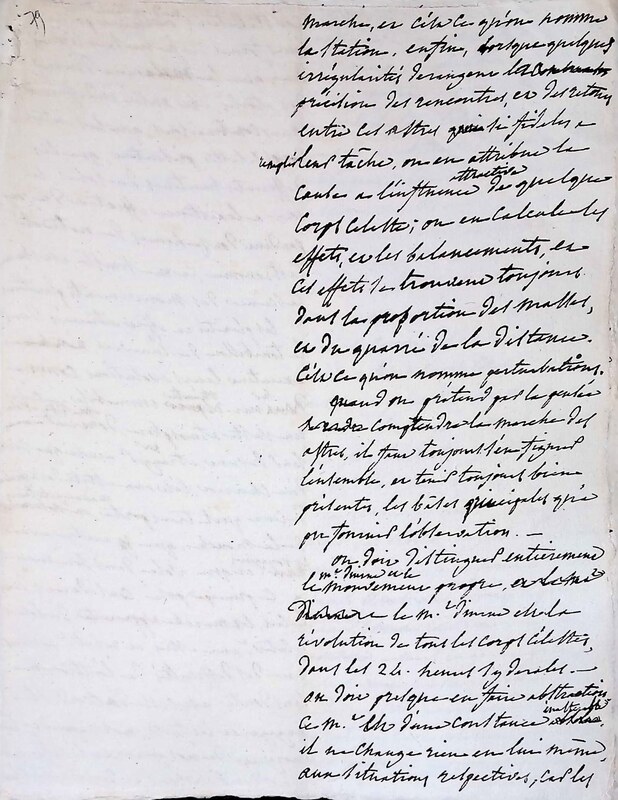 79
marche, et c'est ce qu'on nomme
la station, enfin, lorsque quelques
irrégularités derangent la
précision des rencontres, et des retours
entre ces astres si fideles a
remplir leur tâche, on en attribue la
cause a l'influence attractive de quelque
corps celeste; on en calcule les
effets, et les balancements, et
ces effets se trouvent toujours
dans la proportion des masses,
et du quarré de la distance.
C'est ce qu'on nomme perturbations.
quand on prétend par la pensée
comprendre la marche des
astres, il faut toujours s'en figurer
l'ensemble, et tenir toujours bien
présentes, les bâses principales qu'a
pu fournir l'observation. —
on doit distinguer entierement
le m.t diurne et le
mouvement propre,
le m.t diurne est la
révolution de tous les corps célestes,
dans les 24. heures syderales —
on doit presque en faire abstraction
ce m.t est d'une constance
il ne change rien en lui même,
aux situations respectives, car les